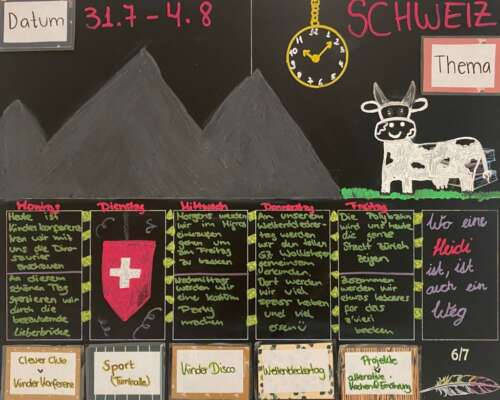 Datum
31.7 - 4.8
SCHWEIZ
Thema
Montag
Dienstag
Mittwoch
Donnerstag
Freitag
Heute ist
Kinderkonferenz
wir mit
uns die
anschauen
An diesem
schönen Tag
spazieren wir
durch die
bezaubernde
Liebesbrücke
Morgens werden
wir im Hirzel
genen um
Zum Freitag
zu backen
Nachmittags
werden wir
eine kostüm
Party
machen
An unserem
Weltentdecker
tag werden
wir den tollen
GZ Wollishofen
gemeinsam
erkunden.
Dort werden
wir viel
spass haben
und viel
essen
Die Polybahn
wird uns heute
die gerne
Stadt Zürich
zeigen
Zusammen
werden wir
etwas leckeres
für das
z'vieri
backen
Wo eine
Heidi
ist, ist
auch ein
Weg
Clever Club
Kinder Konferenz
Sport
(Turnhalle)
Kinder Disco
Weltentdeckertag
Projekte
alternative
Kochen & Ernährung
6/7